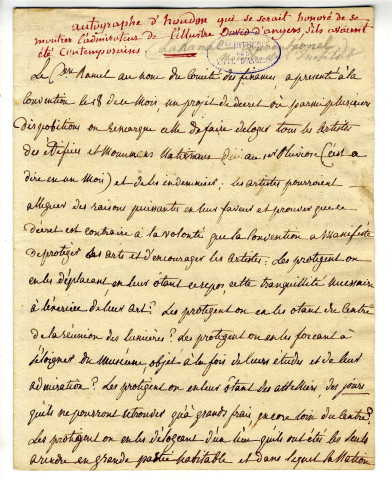 autographe d'houdon qui se serait honoré de se
montrer l'admirateur de l'illustre David d'angers s'ils avaient
été contemporains.
Le Cen Ramel au nom du Comité des finances, a présenté à la
Convention le 18 de ce Mois, un projet de décret ou parmi plusieurs
dispositions on remarque celle de faire deloger tous les artistes
des Edifices et Monumens Nationaux d'ici au 1er Pluviose (C'est a
dire en un Mois) et de les indemniser; les artistes pourroient
alleguer des raisons puissantes en leur faveur et prouver que ce
décret est contraire à la volonté que la Convention a Manifesté
de proteger les arts et d'encourager les artistes: Les protigent on
en les déplacant en leur ôtant ce repos, cette tranquillité necessaire
à l'exercice de leur art? Les protigent on en les otant du Centre
de la réunion des lumieres? Les protigent on en les forcant à
s'éloigner du Muséum objet à la fois de leurs études et de leur
admiration? Les protigent on en leur ôtant des atteliers, des jours
qu'ils ne pourront retrouver qu'a grands frais, encore loin du Centre?
Les protigent on en les délogeant d'un lieu qu'ils ont été les seuls
a rendre en grande partie habitable et dans lequel la Nation